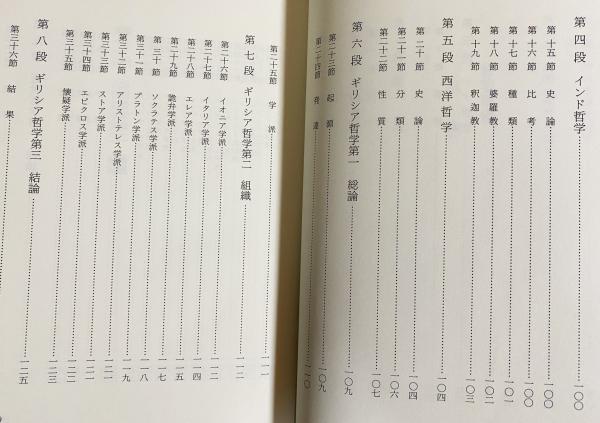 第四段 インド哲学……一〇〇
第十五節 史論……一〇〇
第十六節 比考……一〇〇
第十七節 種類……一〇一
第十八節 婆羅教……一〇二
第十九節 釈迦教……一〇三
第五段 西洋哲学……一〇四
第二十節 史論……一〇四
第二十一節 分類……一〇六
第二十二節 性質……一〇七
第六段 ギリシア哲学第一 総論……一〇九
第二十三節 起源……一〇九
第二十四節 発達……一一〇
第二十五節 学派……一一一
第七段 ギリシア哲学第二 組織……一一二
第二十六節 イオニア学派……一一二
第二十七節 イタリア学派……一一二
第二十八節 エレア学派……一一四
第二十九節 詭弁学派……一一五
第三十節 ソクラテス学派……一一七
第三十一節 プラトン学派……一一八
第三十二節 アリストテレス学派……一一九
第三十三節 ストア学派……一二一
第三十四節 エピクロス学派……一二一
第三十五節 懐疑学派……一二二
第八段 ギリシア哲学第三 結論……一二三
第三十六節 結果……一二五